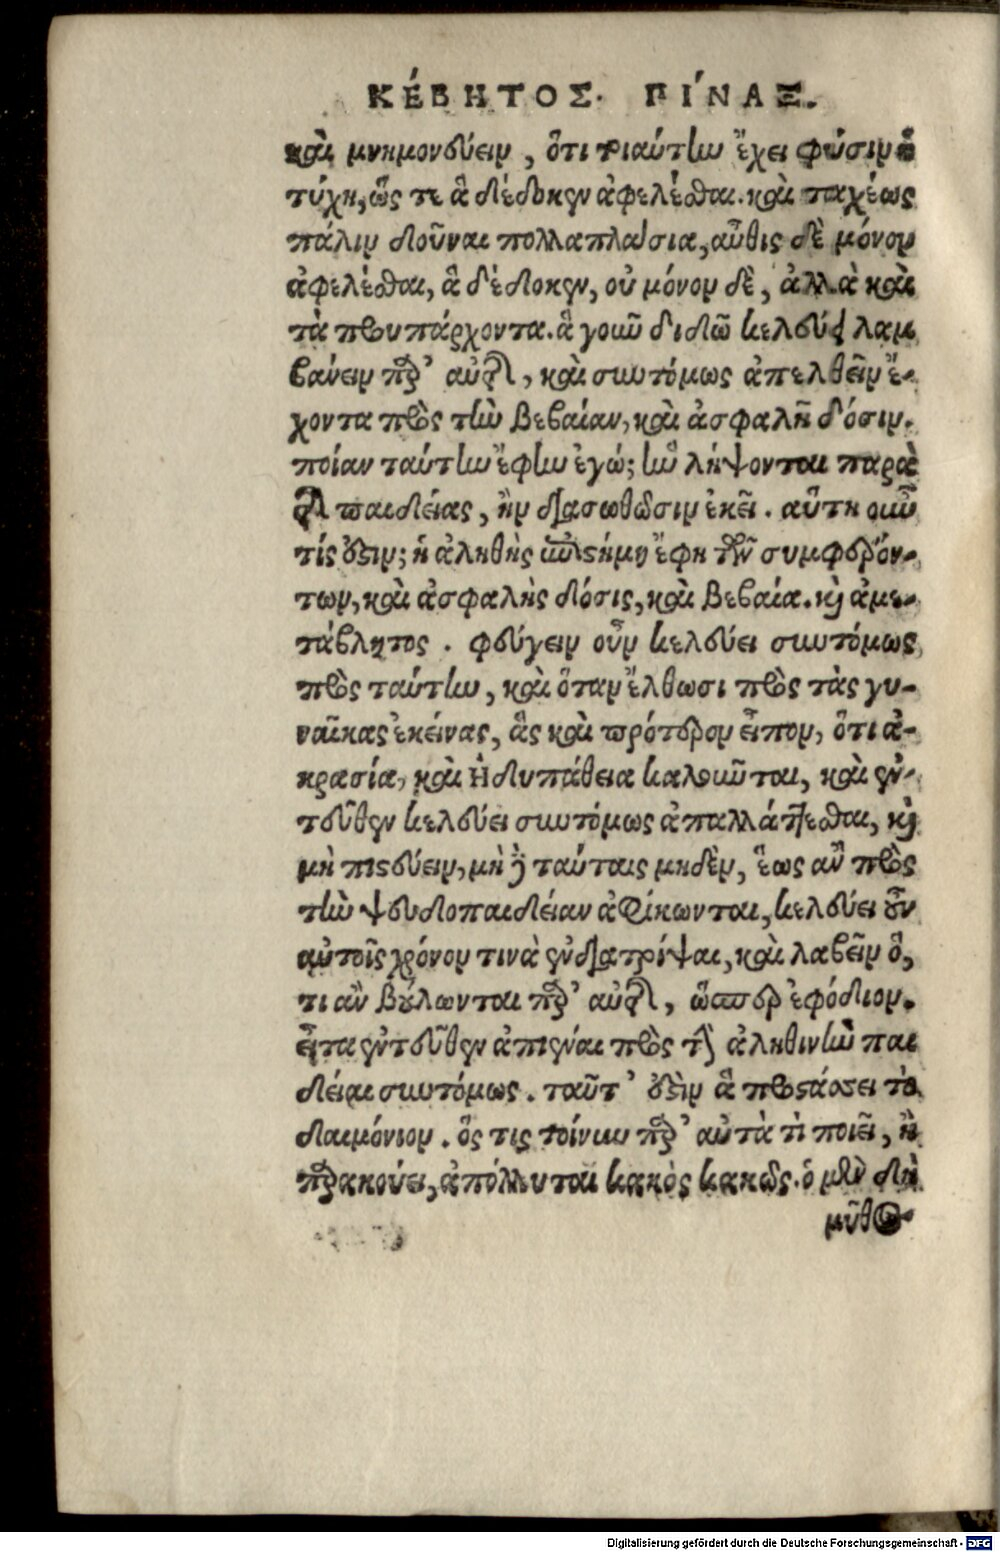 ΚΈΒΗΤΟΣ· ΠΊΝΑΞ.
καὶ μνημονεύειν, ὅτι τοιαύτην ἔχει φύσιν ἡ
τύχη, ὥς τε ἃ δέδοκεν ἀφελέσθαι. καὶ ταχέως
πάλιν δοῦναι πολλαπλάσια, αὖθις δὲ μόνον
ἀφελέσθαι, ἃ δέδοκεν, οὐ μόνον δὲ, ἀλλὰ καὶ
τὰ προυπάρχοντα. ἃ γοῦν διδῶ κελεύει λαμ
βάνειν παρ’ αὐτῆς, καὶ συντόμως ἀπελθεῖν ἔ-
χοντα πρὸς τὴν βεβαίαν, καὶ ἀσφαλῆ δόσιν.
ποίαν ταύτην ἔφην ἐγώ; ἣν λήψονται παρὰ
τῆς παιδείας, ἢν διασωθῶσιν ἐκεῖ. αὕτη οὖν
τίς ὅστιν; ἡ ἀληθὴς ἐπιστήμη ἔφη τῶν συμφερόν-
των, καὶ ἀσφαλὴς δόσις, καὶ βεβαία. καὶ ἀμε-
τάβλητος. φεύγειν οὖν κελεύει συντόμως
πρὸς ταύτην, καὶ ὅταν ἔλθωσι πρὸς τὰς γυ-
ναῖκας ἐκείνας, ἃς καὶ πρότερον εἶπον, ὅτι ἀ-
κρασία, καὶ Ἡδυπάθεια καλοῦνται, καὶ ἐν-
τεῦθεν κελεύει συντόμως ἀπαλλάττεσθαι, καὶ
μὴ πιστεύειν, μὴ δὲ ταύταις μηδὲν, ἕως ἂν πρὸς
τὴν ψευδοπαιδείαν ἀφίκωνται, κελεύει οὖν
αὐτοῖς χρόνον τινὰ ἐνδιατρίψαι, καὶ λαβεῖν ὅ,
τι ἂν βούλωνται παρ’ αὐτῆς, ὥσπερ ἐφόδιον.
εἶτα ἐντεῦθεν ἀπιέναι πρὸς τὴν ἀληθινὴν παι
δείαν συντόμως. ταῦτ’ ὅστιν ἃ προστάσσει τὸ
δαιμόνιον. ὅς τις τοίνυν παρ’ αὐτὰ τὶ ποιεῖ, ἢ
παρακούει, ἀπόλλυται κακὸς κακῶς. ὁ μὲν δὴ
μῦθος
Digitalisierung gefördert durch die Deutsche Forschungsgemeinschaft - DFG